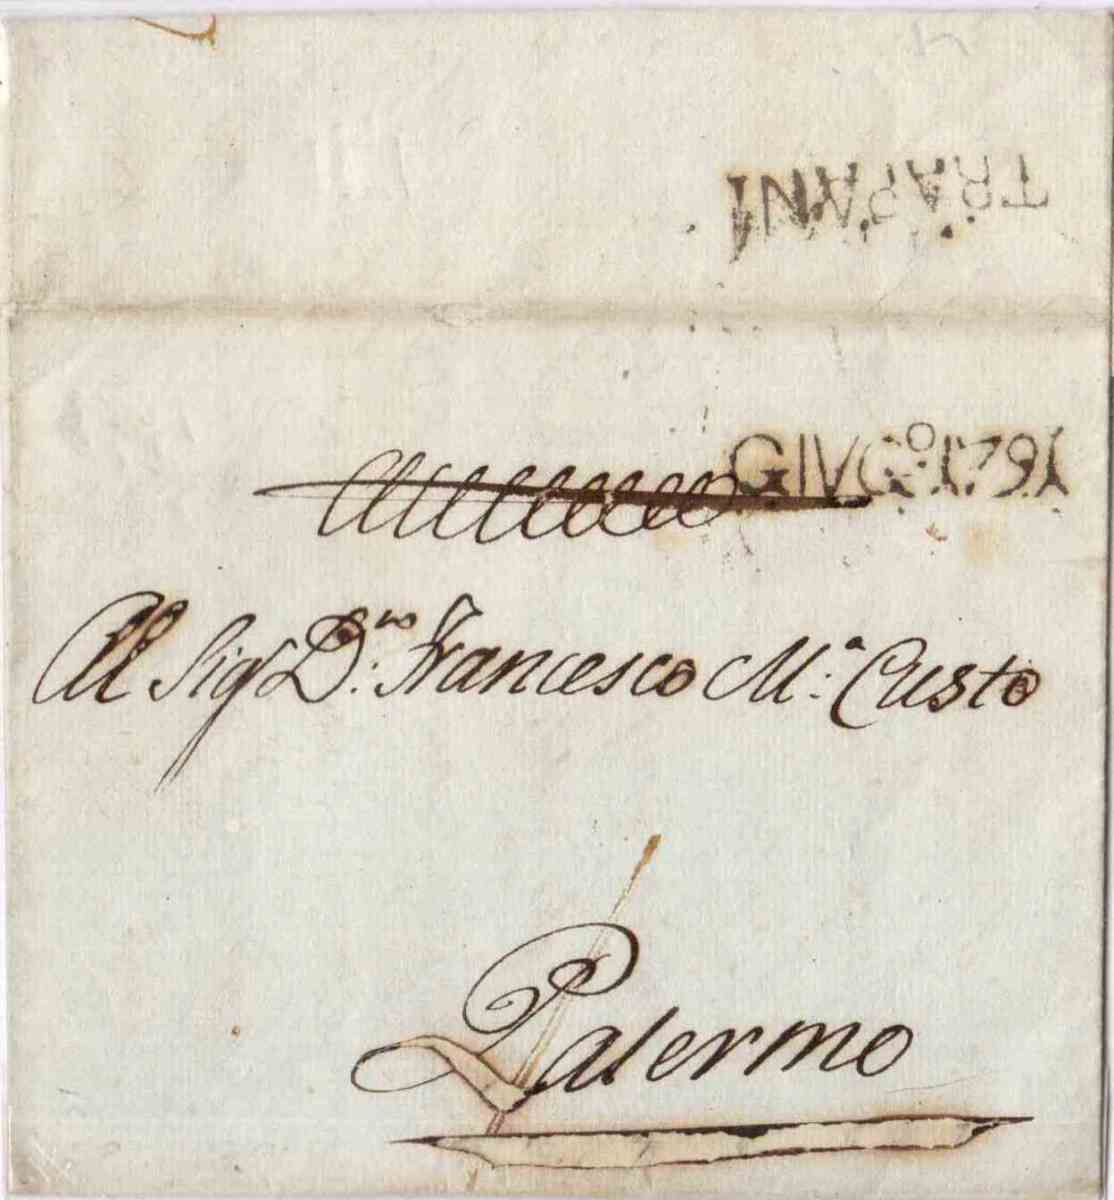 TRAPANI
GIVG.º 1791
All Sigr D.n Francesco M.ª Custo
Palermo